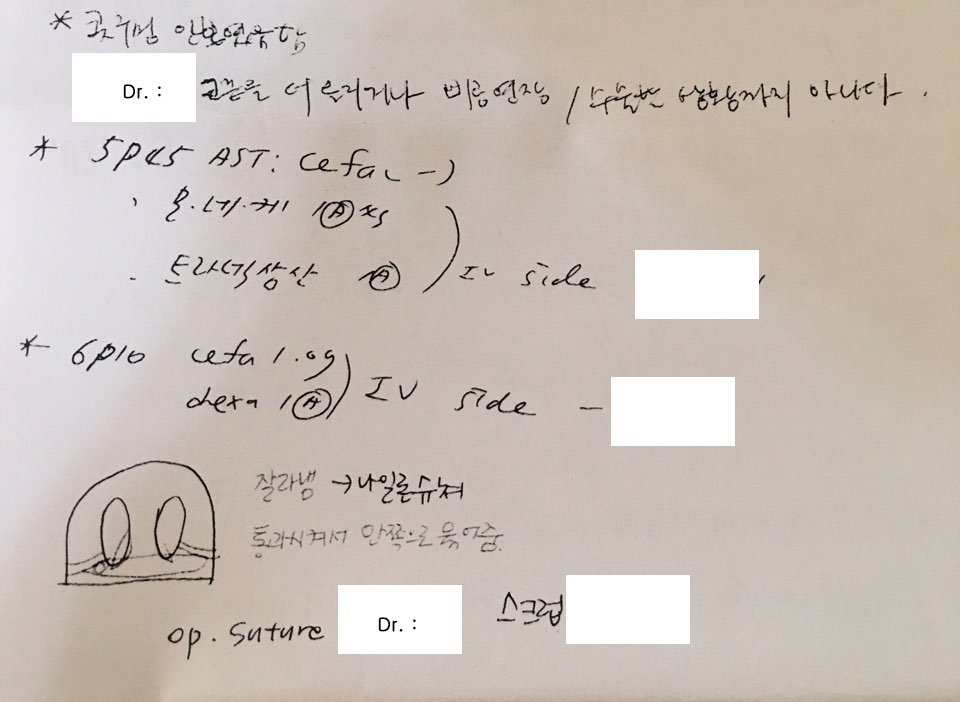 * 콧구멍 안 보였음 함
Dr. : 코끝을 더 올리거나 비중연장 / 수술할 상황까지 아니다.
* 5p45 AST: cefa (-)
· 몬.네.케 1Ⓐ xs
· 트라넥상산 1Ⓐ ) IV side
* 6p10 cefa 1.0g
dexa 1Ⓐ ) IV side -
잘라냄 → 나일론 슈쳐
통과시켜서 안쪽으로 묶어줌.
스크럽
op. suture Dr. :